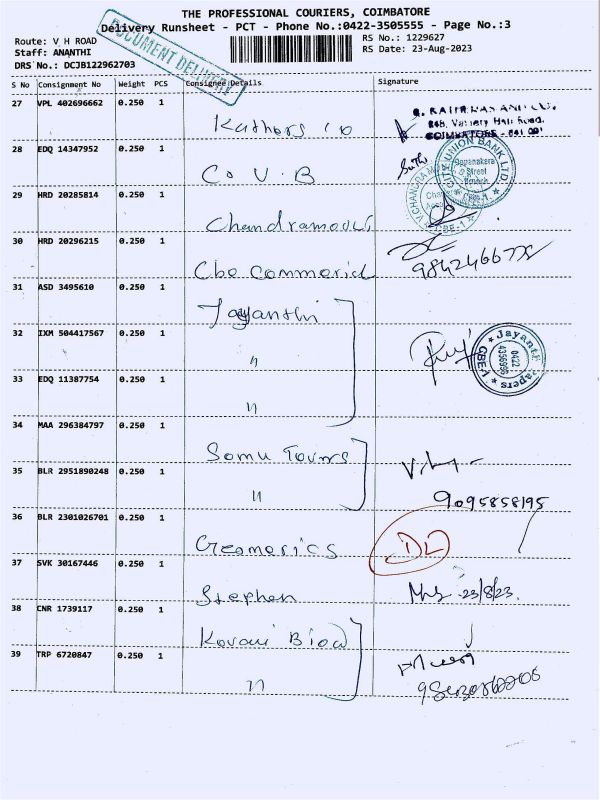 THE PROFESSIONAL COURIERS, COIMBATORE
Delivery Runsheet - PCT - Phone No.:0422-3505555 - Page No.:3
Route: V H ROAD
Staff: ANANTHI
DRS No.: DCJB122962703
RS No.: 1229627
RS Date: 23-Aug-2023
DOCUMENT DELIVERY
S No Consignment No Weight PCS Consignee Details Signature
27 VPL 402696662 0.250 1
COIMBATORE - 641 001
28 EDQ 14347952 0.250 1 C.U.B
CITY UNION BANK LTD
Street
29 HRD 20285814 0.250 1 Chandramouli
30 HRD 20296215 0.250 1 Cbe Commerical
31 ASD 3495610 0.250 1 Jayanthi
32 IXM 504417567 0.250 1 "
Jayanth Papers
CBE-1
0422
33 EDQ 11387754 0.250 1 "
34 MAA 296384797 0.250 1 Somu Tours
35 BLR 2951890248 0.250 1 "
9095858195
36 BLR 2301026701 0.250 1 Geomerics DL
37 SVK 30167446 0.250 1 Stephen 23/8/23.
38 CNR 1739117 0.250 1 Kovai
39 TRP 6720847 0.250 1 "